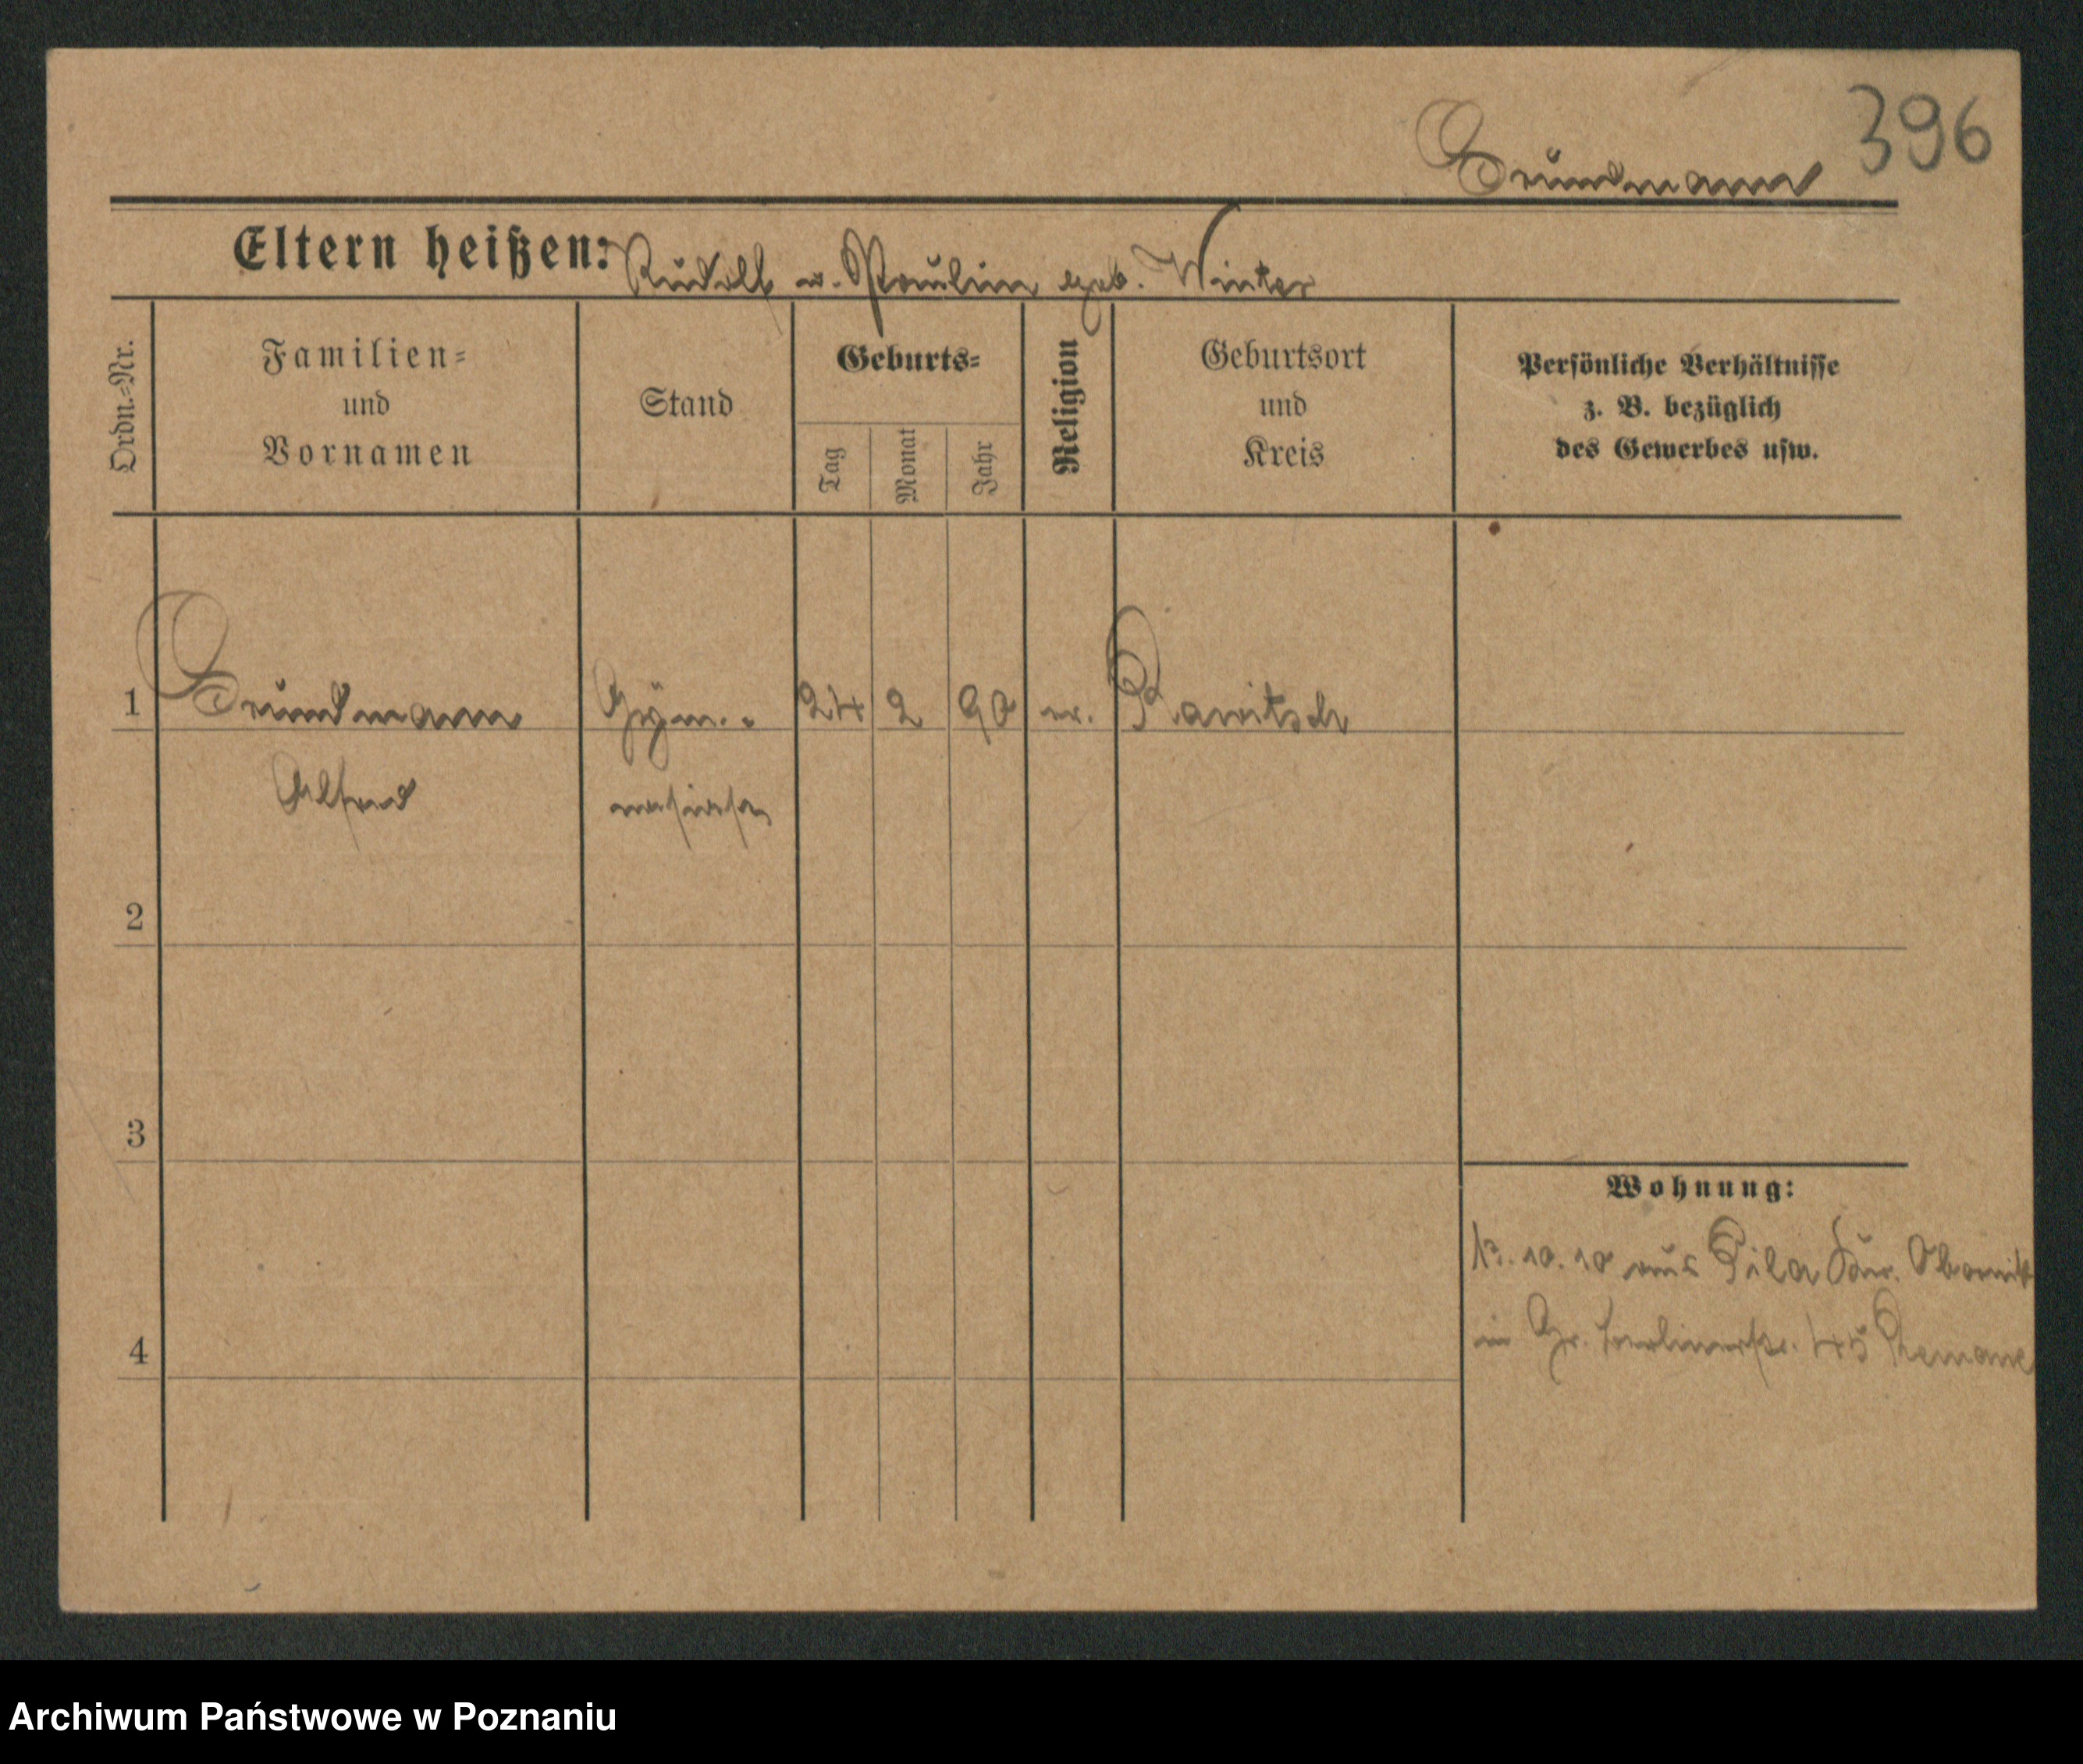 396
Grundmann
Eltern heißen: Rudolf u. Paulin geb. Winter
Ordn.-Nr.
Familien-
und
Vornamen
Stand
Geburts-
Tag
Monat
Jahr
Religion
Geburtsort
und
Kreis
Persönliche Verhältnisse
z. B. bezüglich
des Gewerbes usw.
1 Grundmann Gym.- 24 2 90 Rawitsch
Alfred
2
3
4
Wohnung:
10. 10 aus Pila
in Gr. Berlinerstr. 45
Archiwum Państwowe w Poznaniu